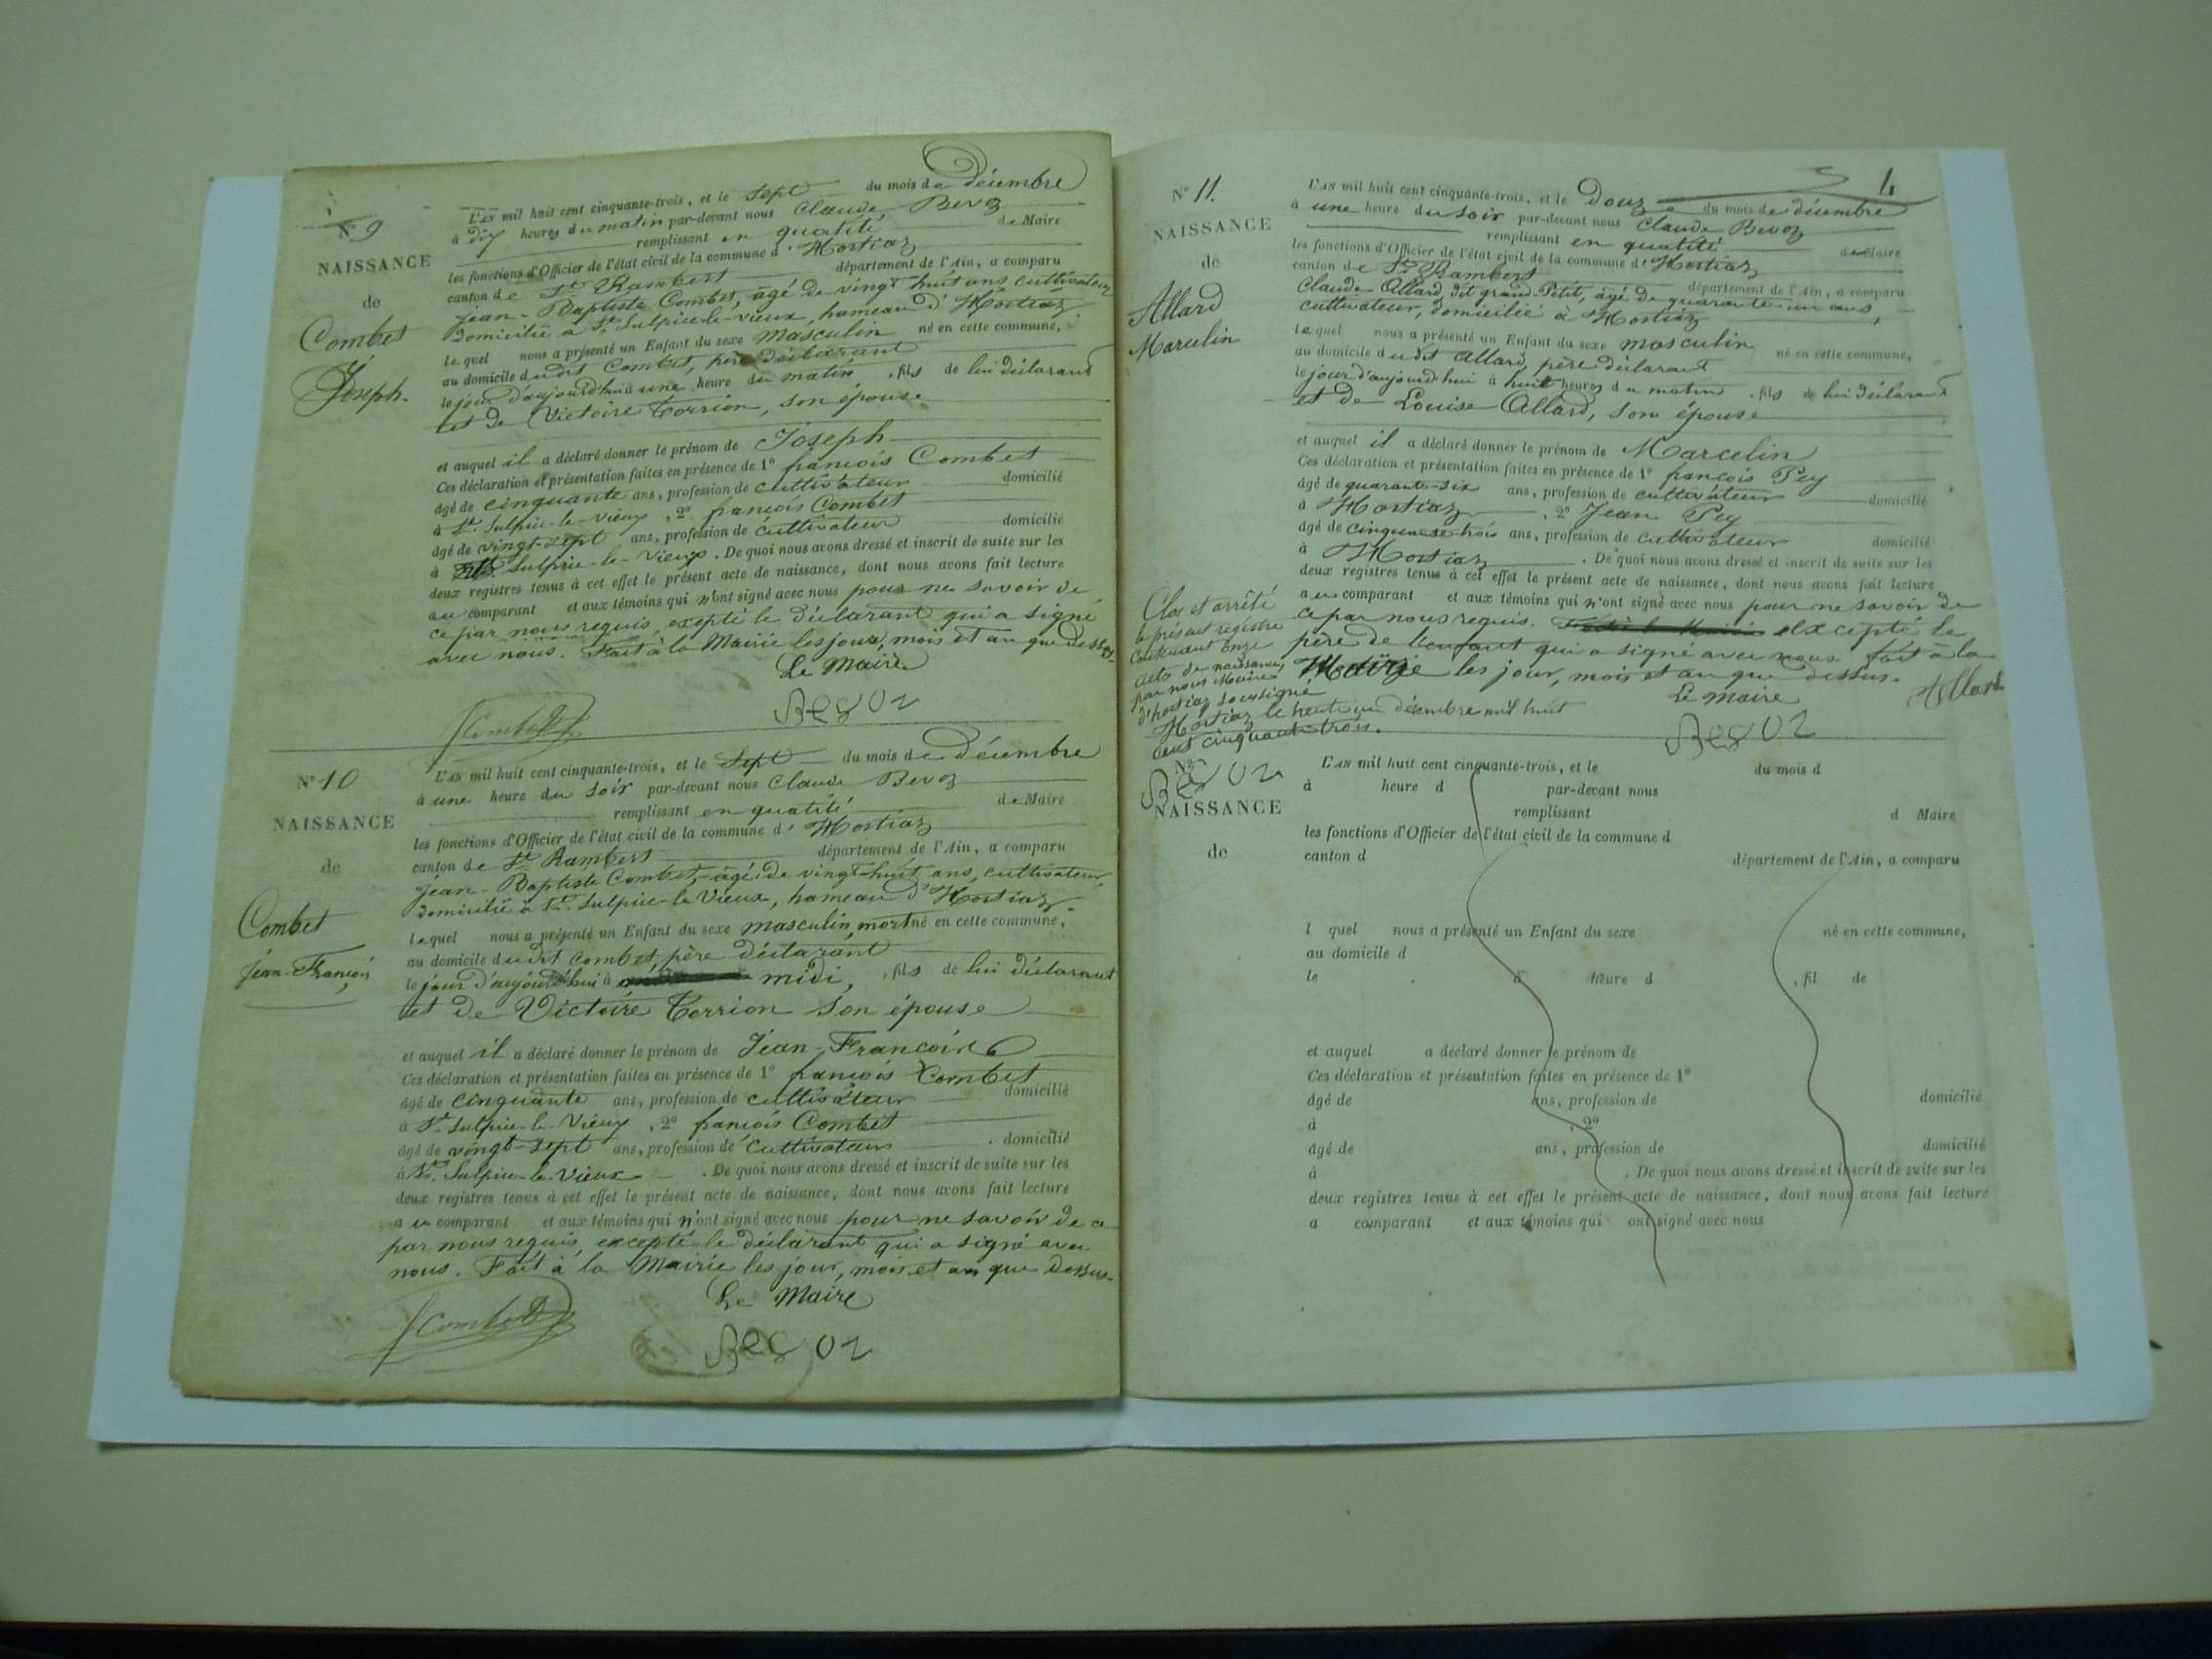 N° 9
NAISSANCE
de
Combet
Joseph.
L'AN mil huit cent cinquante-trois, et le Sept du mois de décembre
à dix heures du matin par-devant nous Claude Bevoz
remplissant en qualité de Maire
les fonctions d'Officier de l'état civil de la commune d'Hostiaz
canton de St. Rambert département de l'Ain, a comparu
Jean-Baptiste Combet, âgé de vingt huit ans cultivateur
domicilié à St. Sulpice-le-vieux, hameau d'Hostiaz
lequel nous a présenté un Enfant du sexe masculin né en cette commune,
au domicile dudit Combet, père déclarant
le jour d'aujourd'hui à une heure du matin, fils de lui déclarant
et de Victoire Torrion, son épouse
et auquel il a déclaré donner le prénom de Joseph
Ces déclaration et présentation faites en présence de 1° françois Combet
âgé de cinquante ans, profession de cultivateur domicilié
à St. Sulpice-le-vieux, 2° françois Combet
âgé de vingt-sept ans, profession de cultivateur domicilié
à St. Sulpice-le-vieux. De quoi nous avons dressé et inscrit de suite sur les
deux registres tenus à cet effet le présent acte de naissance, dont nous avons fait lecture
au comparant et aux témoins qui n'ont signé avec nous pour ne savoir de
ce par nous requis, excepté le déclarant qui a signé
avec nous. Fait à la Mairie les jour, mois et an que dessus.
Le Maire
Combet
Bevoz
N° 10
NAISSANCE
de
Combet
Jean-François
L'AN mil huit cent cinquante-trois, et le Sept du mois de décembre
à une heure du soir par-devant nous Claude Bevoz
remplissant en qualité de Maire
les fonctions d'Officier de l'état civil de la commune d'Hostiaz
canton de St. Rambert département de l'Ain, a comparu
Jean-Baptiste Combet, âgé de vingt-huit ans, cultivateur,
domicilié à St. Sulpice-le-Vieux, hameau d'Hostiaz.
lequel nous a présenté un Enfant du sexe masculin, mort né en cette commune,
au domicile dudit Combet, père déclarant
le jour d'aujourd'hui à midi, fils de lui déclarant
et de Victoire Torrion son épouse
et auquel il a déclaré donner le prénom de Jean-François
Ces déclaration et présentation faites en présence de 1° françois Combet
âgé de cinquante ans, profession de cultivateur domicilié
à St. Sulpice-le-Vieux, 2° françois Combet
âgé de vingt-sept ans, profession de cultivateur domicilié
à St. Sulpice-le-Vieux. De quoi nous avons dressé et inscrit de suite sur les
deux registres tenus à cet effet le présent acte de naissance, dont nous avons fait lecture
au comparant et aux témoins qui n'ont signé avec nous pour ne savoir de ce
par nous requis, excepté le déclarant qui a signé avec
nous. Fait à la Mairie les jour, mois et an que dessus.
Le Maire
Combet
Bevoz
4
N° 11.
NAISSANCE
de
Allard
Marcelin
L'AN mil huit cent cinquante-trois, et le Douze du mois de décembre
à une heure du soir par-devant nous Claude Bevoz
remplissant en qualité de Maire
les fonctions d'Officier de l'état civil de la commune d'Hostiaz
canton de St. Rambert département de l'Ain, a comparu
Claude Allard dit grand-Petit, âgé de quarante-un ans,
cultivateur, domicilié à Hostiaz
lequel nous a présenté un Enfant du sexe masculin né en cette commune,
au domicile dudit Allard, père déclarant
le jour d'aujourd'hui à huit heures du matin, fils de lui déclarant
et de Louise Allard, son épouse
et auquel il a déclaré donner le prénom de Marcelin
Ces déclaration et présentation faites en présence de 1° françois Pey
âgé de quarante-six ans, profession de cultivateur domicilié
à Hostiaz, 2° Jean Pey
âgé de cinquante-trois ans, profession de cultivateur domicilié
à Hostiaz. De quoi nous avons dressé et inscrit de suite sur les
deux registres tenus à cet effet le présent acte de naissance, dont nous avons fait lecture
au comparant et aux témoins qui n'ont signé avec nous pour ne savoir de
ce par nous requis. excepté le
père de l'enfant qui a signé avec nous. fait à la
Mairie les jour, mois et an que dessus.
Le Maire
Allard
Bevoz
Clos et arrêté
le présent registre
contenant onze
actes de naissances,
par nous Maire
d'hostiaz soussigné
Hostiaz le trente un décembre mil huit
cent cinquante trois.
Bevoz
N°
NAISSANCE
de
L'AN mil huit cent cinquante-trois, et le du mois d
à heure d par-devant nous
remplissant d Maire
les fonctions d'Officier de l'état civil de la commune d
canton d département de l'Ain, a comparu
l quel nous a présenté un Enfant du sexe né en cette commune,
au domicile d
le à heure d , fil de
et auquel a déclaré donner le prénom de
Ces déclaration et présentation faites en présence de 1°
âgé de ans, profession de domicilié
à , 2°
âgé de ans, profession de domicilié
à . De quoi nous avons dressé et inscrit de suite sur les
deux registres tenus à cet effet le présent acte de naissance, dont nous avons fait lecture
a comparant et aux témoins qui ont signé avec nous